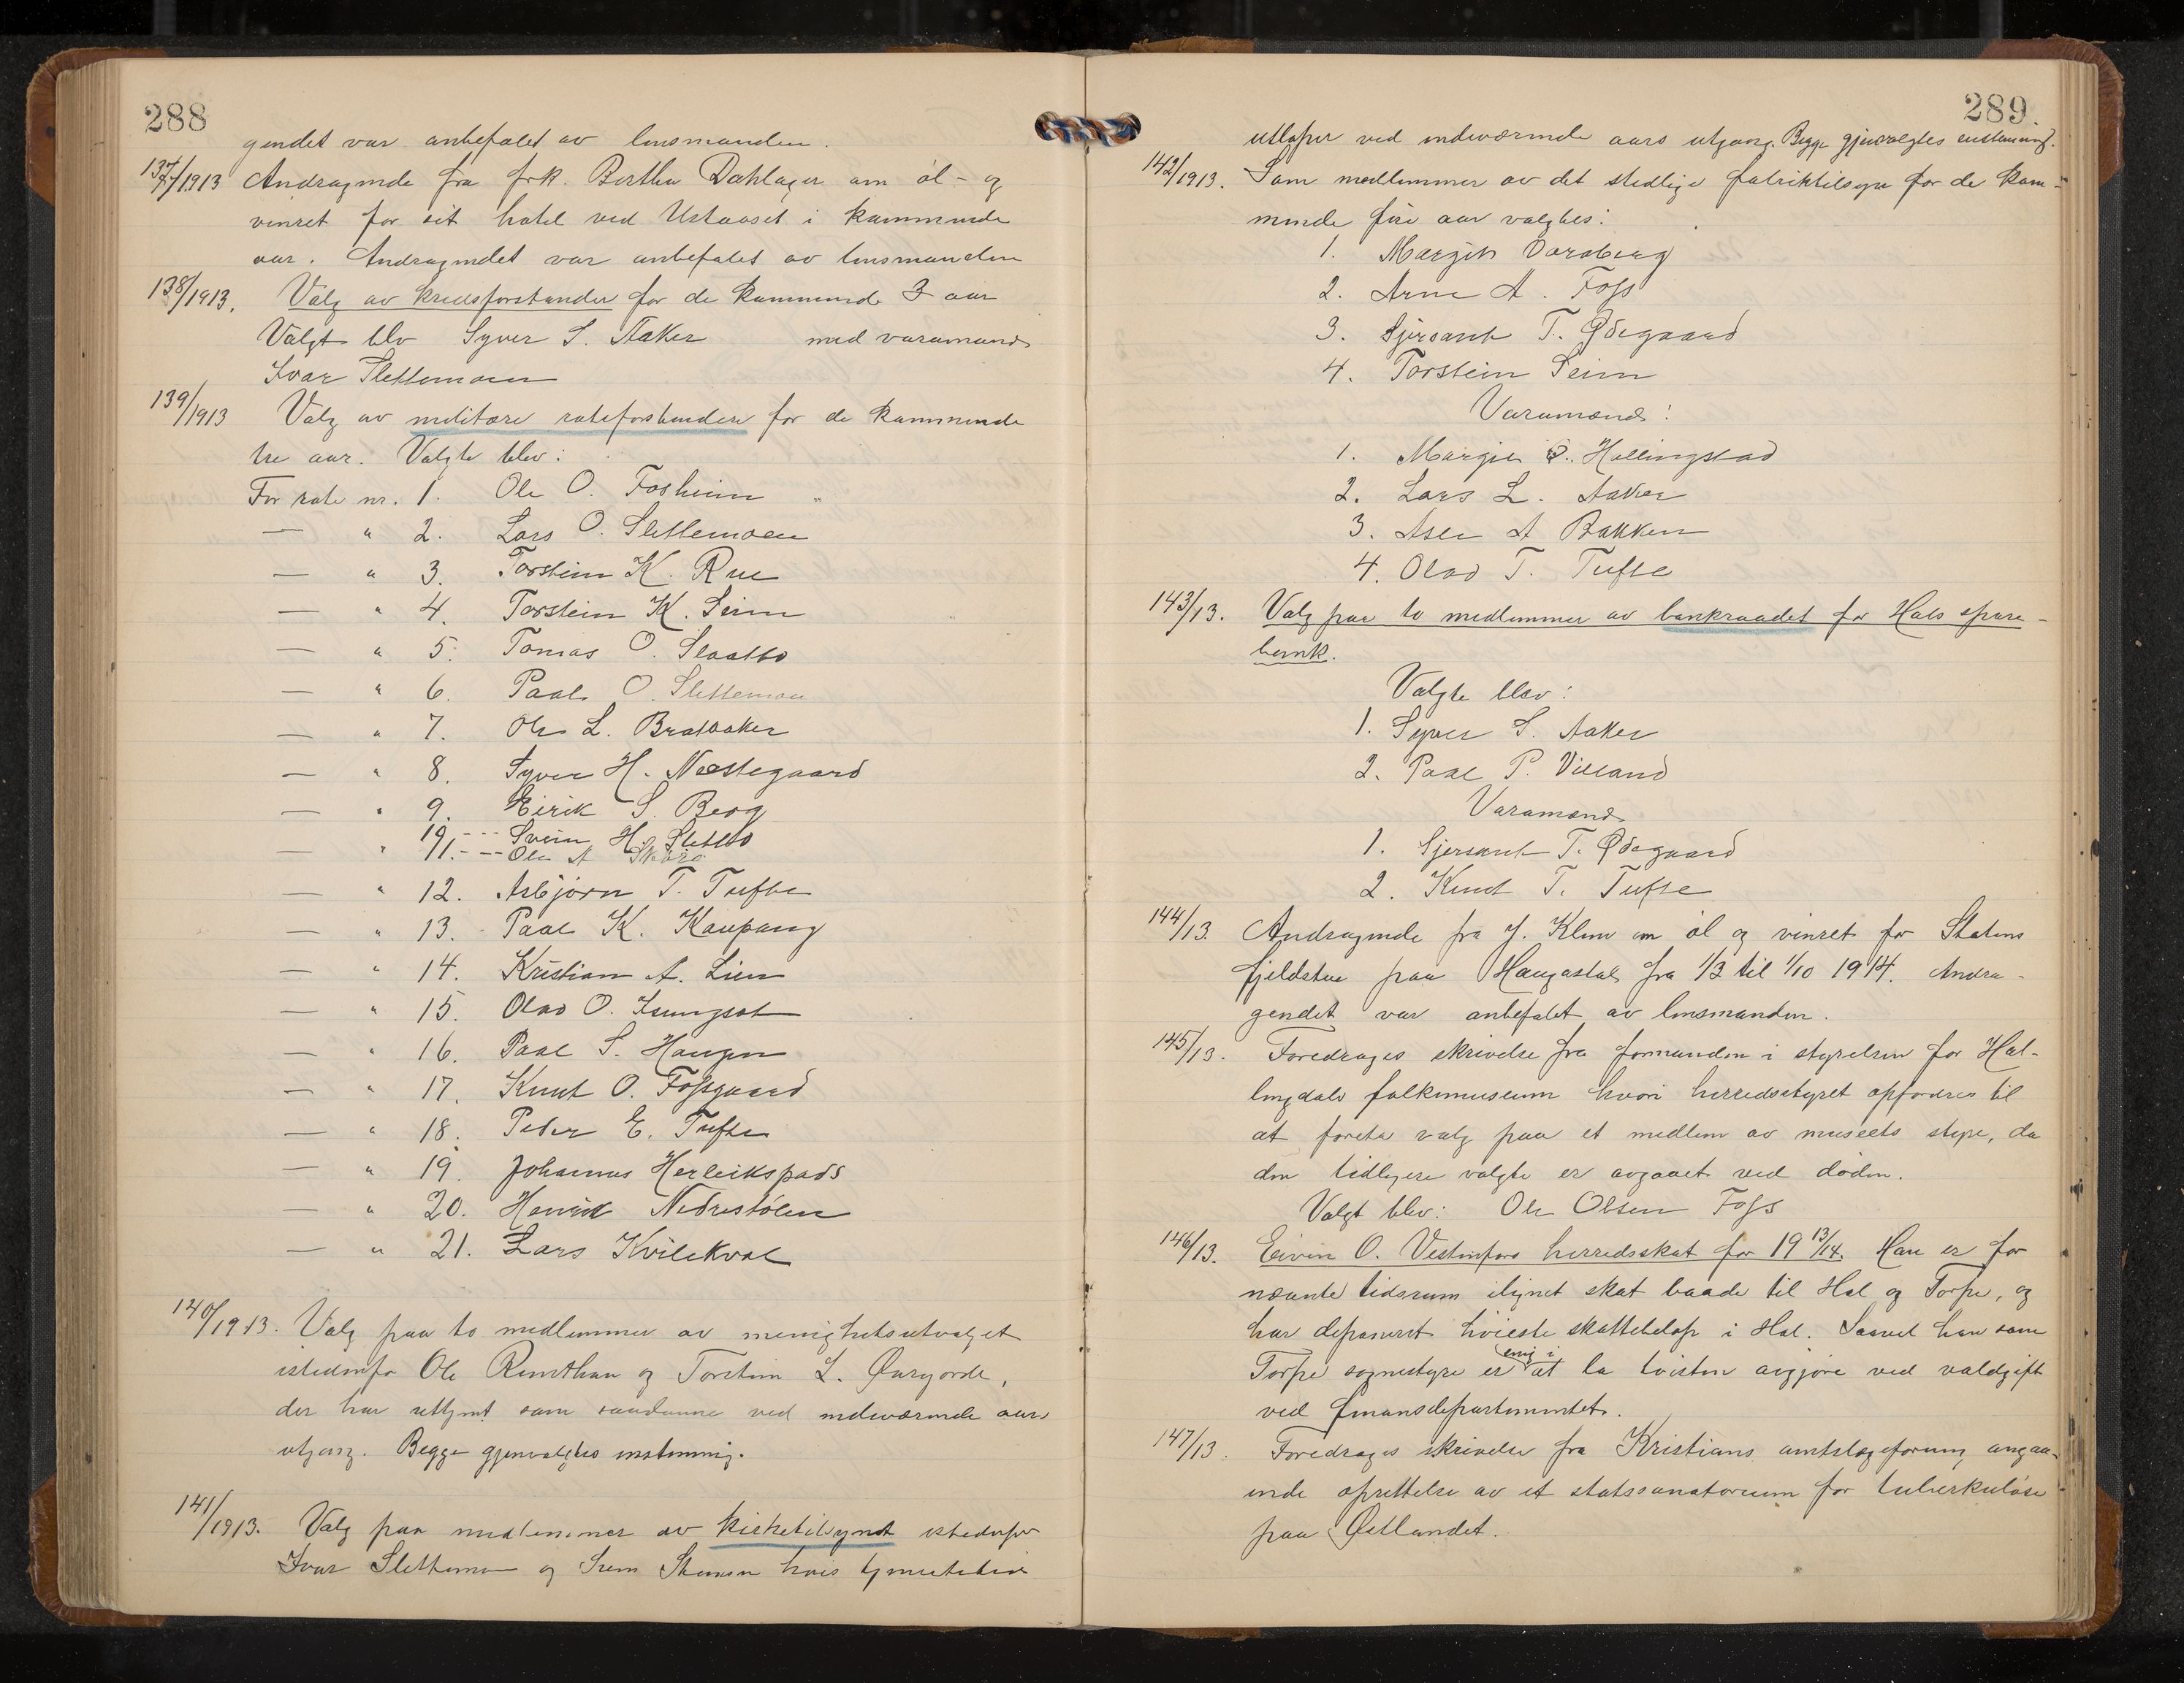 288
gendet var anbefalet av lensmanden.
137/1913 Andragende fra frk. Bertha Dahlager om øl- og
vinret for sit hotel ved Ustaoset i kommende
aar. Andragendet var anbefalet av lensmanden
138/1913. Valg av kredsforstander for de kommende 3 aar
Valgt blev Syver S. Aaker med varamand
Ivar Slettemoen
139/1913 Valg av militære roteforstandere for de kommende
tre aar. Valgte blev:
For rote nr. 1. Ole O. Fosheim
— " 2. Lars O. Slettemoen
— " 3. Torstein K. Rue
— " 4. Torstein K. Seim
— " 5. Tomas O. Slaatto
— " 6. Paal O. Slettemoen
— " 7. Ole L. Brataaker
— " 8. Syver H. Næstegaard
— " 9. Eirik S. Berg
— " 10. -- Svein H. Sletto
11. -- Ole A Skøro
— " 12. Asbjørn T. Tufte
— " 13. Paal K. Kaupang
— " 14. Kristian A. Lien
— " 15. Olav O. Isungset
— " 16. Paal S. Haugen
— " 17. Knut O. Fossgaard
— " 18. Peder E. Tufte
— " 19. Johannes Herleikspads
— " 20. Henrik Nedrestølen
— " 21. Lars Kvilekval
140/1913. Valg paa to medlemmer av menighetsutvalget
istedenfor Ole Runthan og Torstein L. Øvrejorde,
der har uttjent som saadanne ved indeværende aars
utgang. Begge gjenvalgtes enstemmig.
141/1913. Valg paa medlemmer av kirketilsynet istedenfor
Ivar Slettemoen og Svein hvis tjenestetid
289.
utløper ved indeværende aars utgang. Begge gjenvalgtes enstemmig.
142/1913. Som medlemmer av det stedlige fabriktilsyn for de kom-
mende fire aar valgtes:
1. Margit Varaberg
2. Arne A. Foss
3. Sjersant T. Ødegaard
4. Torstein Seim
Varamænd:
1. Margit O. Hallingstad
2. Lars L. Aaker
3. Asle A Bakken
4. Olav T. Tufte
143/13. Valg paa to medlemmer av bankraadet for Hols spare-
bank.
Valgte blev:
1. Syver S. Aaker
2. Paal P. Villand
Varamænd
1. Sjersant T. Ødegaard
2. Knut T. Tufte
144/13. Andragende fra J. Klem om øl og vinret for Statens
fjeldstue paa Haugastøl fra 1/3 til 1/10 1914. Andra-
gendet var anbefalet av lensmanden.
145/13. Foredrages skrivelse fra formanden i styrelsen for Hal-
lingdals folkemuseum hvori herredsstyret opfordres til
at foreta valg paa et medlem av museets styre, da
den tidligere valgte er avgaaet ved døden.
Valgt blev: Ole Olsen Foss
146/13. Eivin O. Vestenfors herredsskat for 19 13/14. Han er for
nævnte tidsrum ilignet skat baade til Hol og Torpe, og
har deponeret høieste skattebeløp i Hol. Saavel han som
Torpe sognestyre er enig i at la tvisten avgjøre ved voldgift
ved finansdepartementet.
147/13. Foredrages skrivelse fra Kristians amtslægeforening angaa-
ende oprettelse av et statssanatorium for tuberkuløse
paa Østlandet.